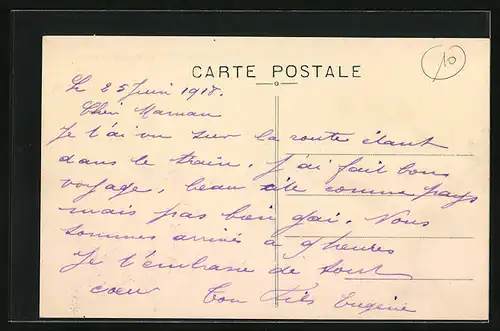 CARTE POSTALE
10
Le 25 Juin 1918.
Cher Maman
Je t'ai vu sur la route étant
dans le train. J'ai fait bons
voyage, beau comme pays
mais pas bien gai. Nous
sommes arrivés à 9 heures
Je t'embrasse de tout
coeur Ton Fils Eugène